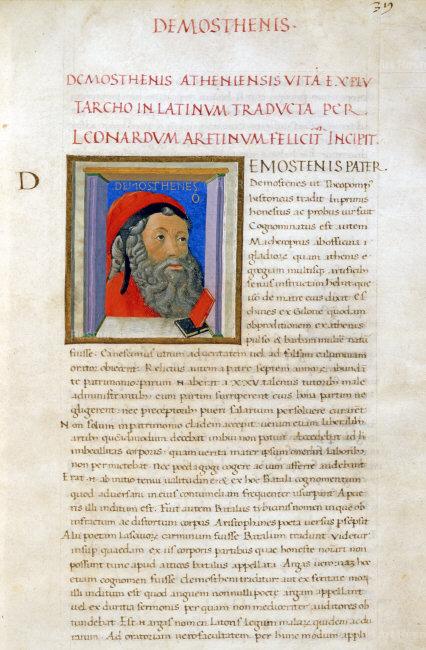 39
DEMOSTHENIS.
DEMOSTHENIS ATHENIENSIS VITA EX PLV
TARCHO IN LATINVM TRADVCTA PER
LEONARDVM ARETINVM FELICIT INCIPIT.
D
DEMOSTHENES
O
EMOSTENIS PATER.
Demostenes ut Theopomp
historicus tradit Inprimis
honestus ac probus uir fuit
Cognominatus est autem
Macheropius ab officina
gladiorum quam athenis e
gregiam multisque artificibus
seruis instructam habuit que
de matre eius dixit Es
chines ex Gilone quodam
ob proditionem ex athenis
pulso & barbara muliere natam
fuisse. utrum ad ueritatem uel ad
obiecerit Relictus autem a patre septem
patrimonio parum aberat a XXV talentis tutoribus male
administrantibus cum partim surriperent eius bona partim ne
gligerent nec preceptoribus pueri salarium persoluere
Non solum in patrimonio cladem accepit uerum etiam liberalibus
artibus quem admodum decebat imbui non potuit Accedebat ad
imbecillitas corporis quam uerita mater ipsum onerari laboribus
non permittebat Nec pedagogi cogere ac uim afferre audebant
Erat ab initio tenui ualitudine & ex hoc Batali cognomentum
quod aduersarii in eius contumeliam frequenter usurpant A pue
ris illi inditum est. Fuit autem Batalus tybicinis nomen
infractum ac distortum corpus Aristophanes poeta uersu
Alii poetam lasciuorum carminum fuisse Batalum tradunt Videtur
insuper quaedam ex iis corporis partibus quae honeste nominari non
possunt tunc apud atticos batalus appellari Argas
etiam cognomen fuisse demostheni traditur aut ex feritate
illi inditum est quod anguem nonnulli poetae argam appellant
uel ex duritia sermonis per quam non mediocriter auditores ob
tundebat Est argas nomen Latoris legum malarum quidem
Ad oratoriam uero facultatem per hunc modum appli